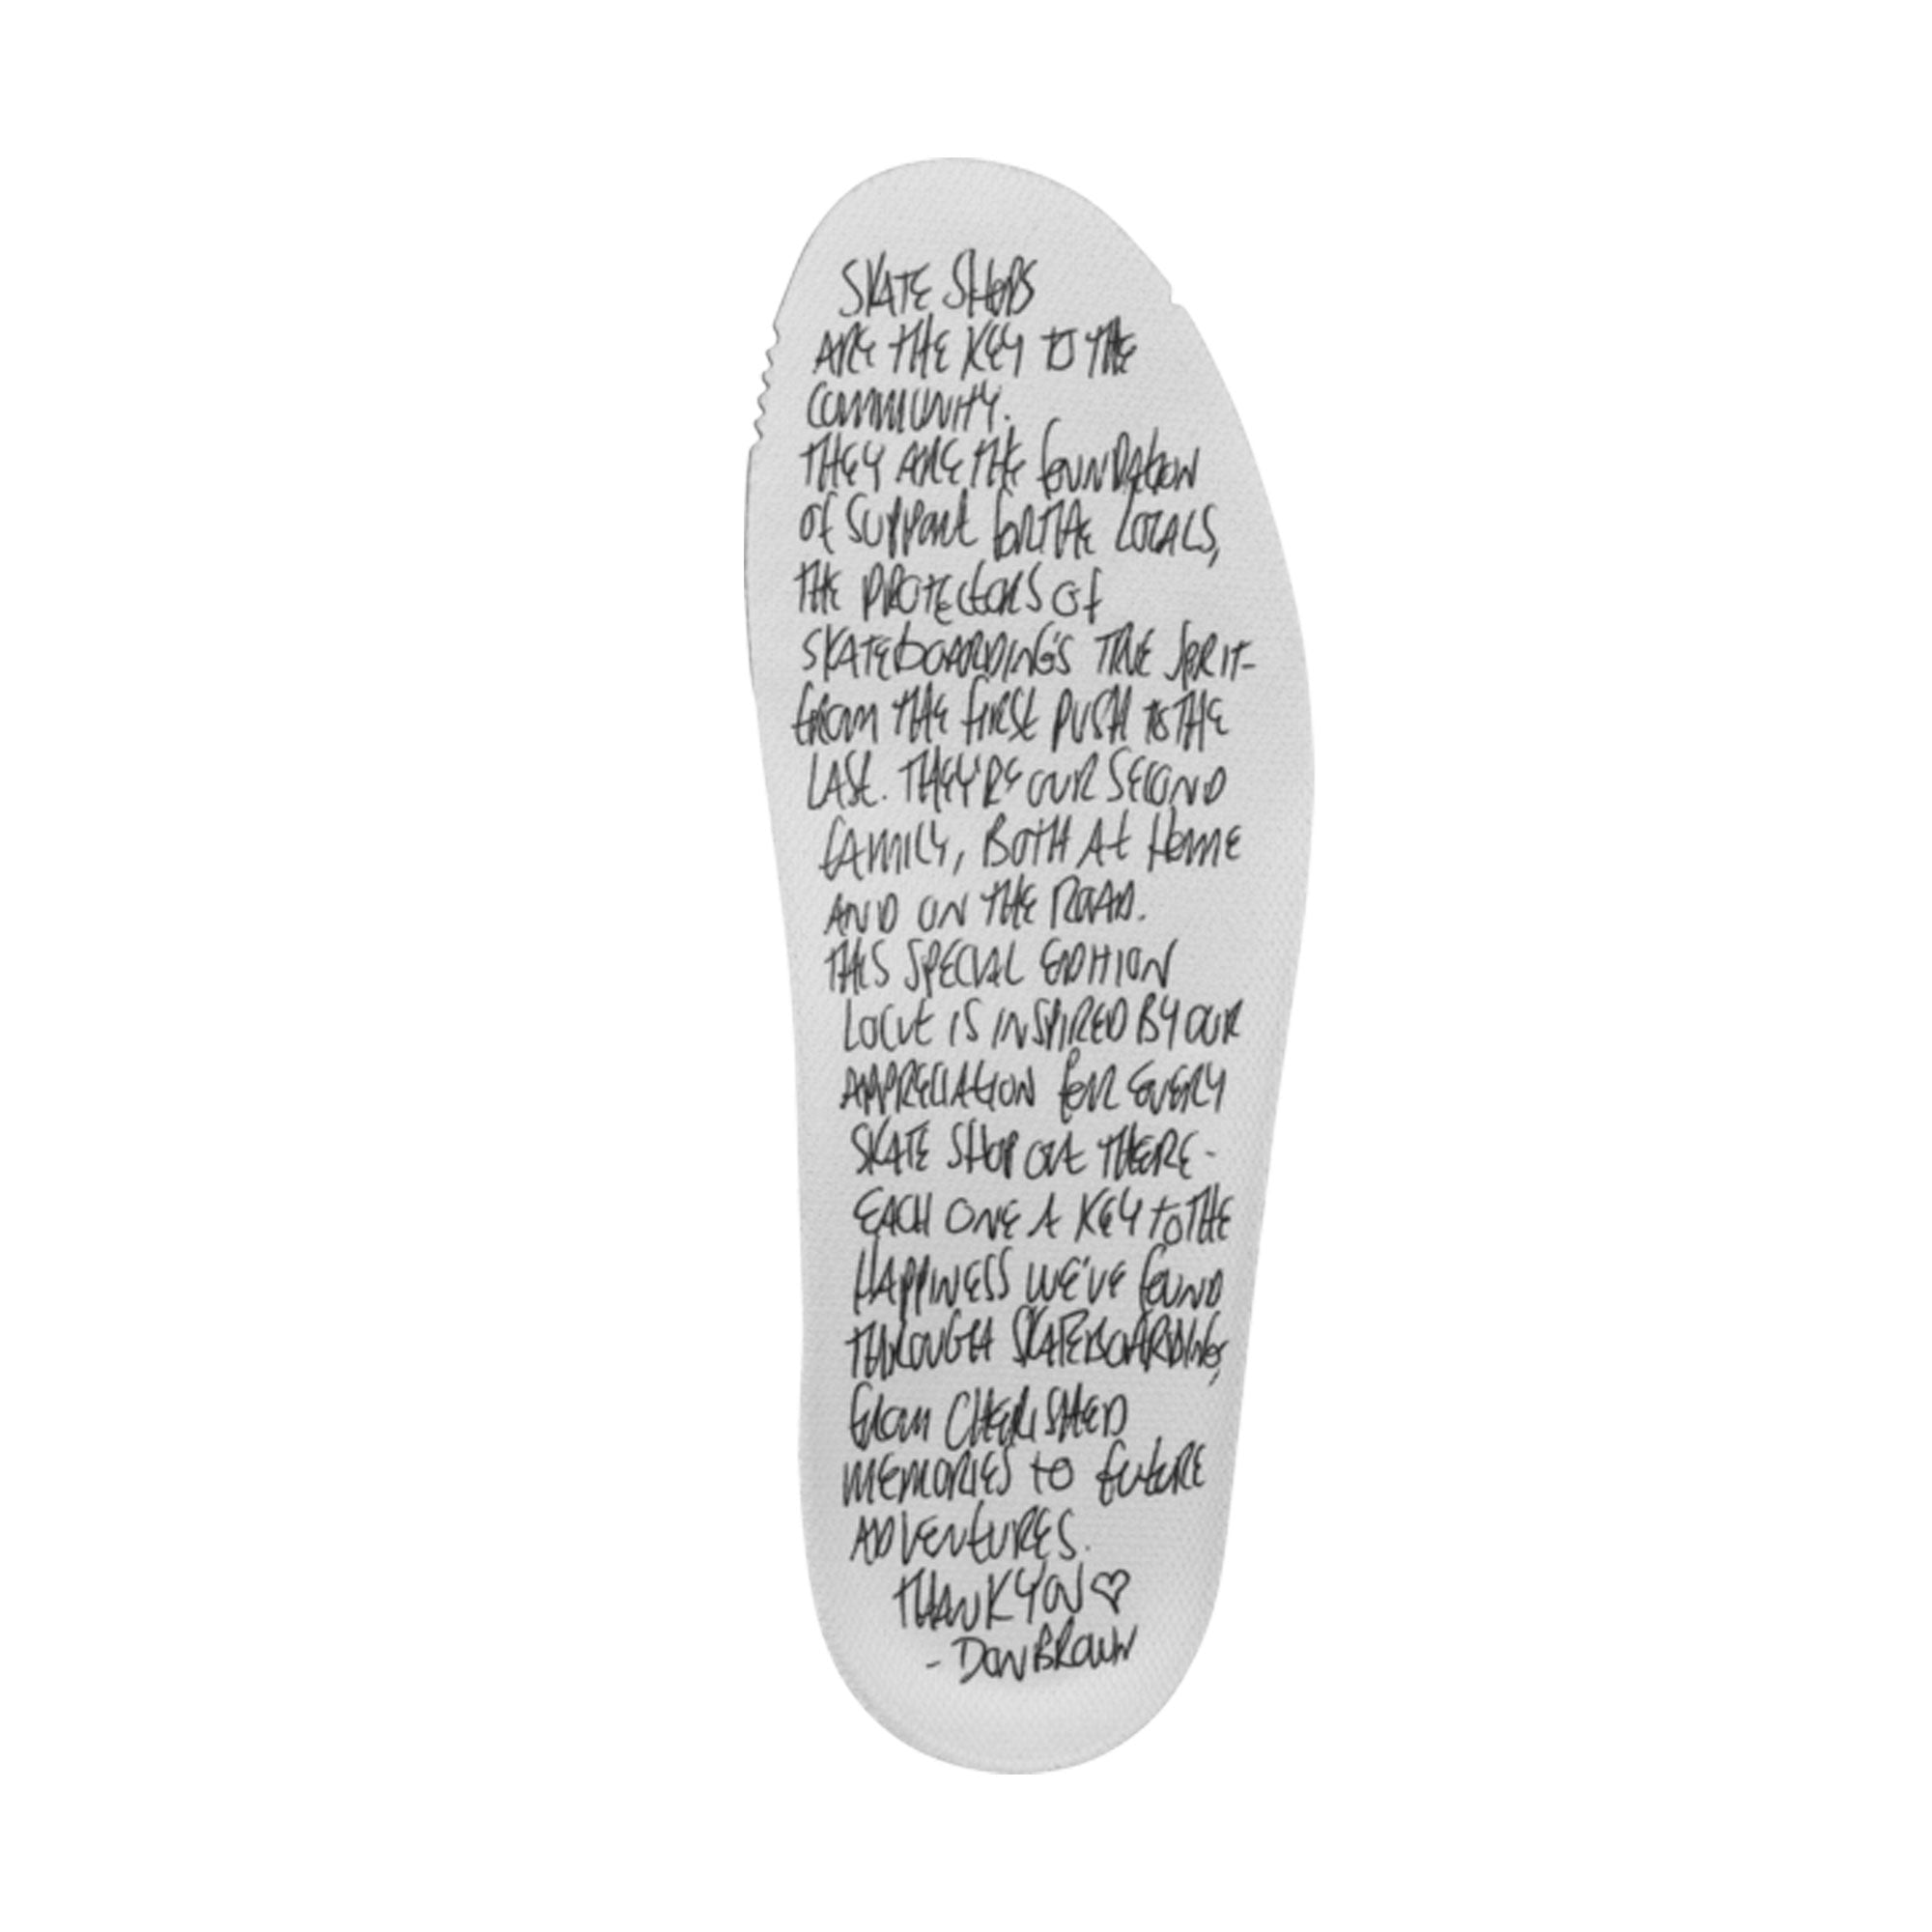 SKATE SHOPS
ARE THE KEY TO THE
COMMUNITY.
THEY ARE THE foUNDAtION
Of SUPPORt foR THE LOCALS,
THE PROTECtORS Of
SKATEbOARDING'S TRUE SPIRIT-
fROM THE fIRSt PUSH TO THE
LASt. THEY'RE OUR SECOND
fAMILY, BOTH At HOME
AND ON THE ROAD.
THIS SPECIAL EDITION
LOCUt IS INSPIRED BY OUR
APPRECIAtION foR EVERY
SKATE SHOP OUt THERE -
EACH ONE A KEY to THE
HAPPINESS WE'VE foUND
THROUGH SKATEBOARDING,
fROM CHERISHED
MEMORIES tO fUtURE
ADVENtURES.
THANK YOU ♡
- DON BROWN